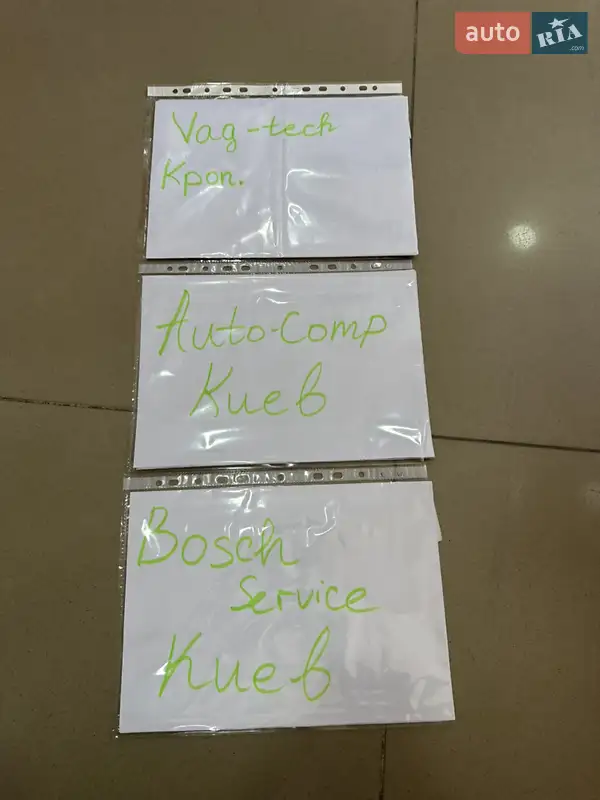 auto RIA .com
Vag-tech
Кроп.
Auto-Comp
Киев
Bosch
Service
Киев